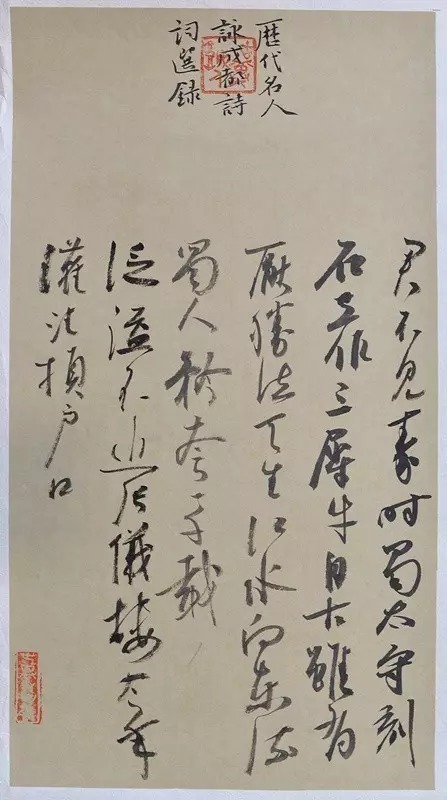 歷代名人
詠成都詩
詞選録
君不見秦時蜀太守刻
石立作三犀牛自古雖有
厭勝法天生江水向東流
蜀人矜夸一千載
泛溢不近張儀樓今年
灌注損户口